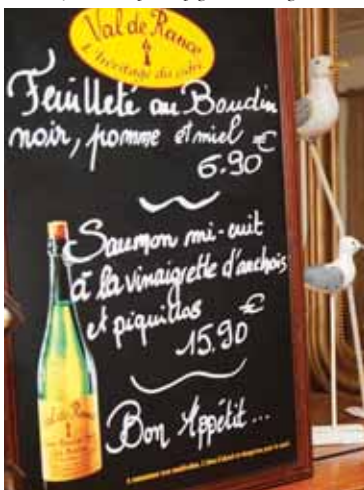 Val de Rance
L'héritage du cidre
Feuilleté au Boudin
noir, pomme et miel €
6.90
Saumon mi-cuit
à la vinaigrette d'anchois
et piquillos €
15.90
Val de Rance
Bon Appétit...